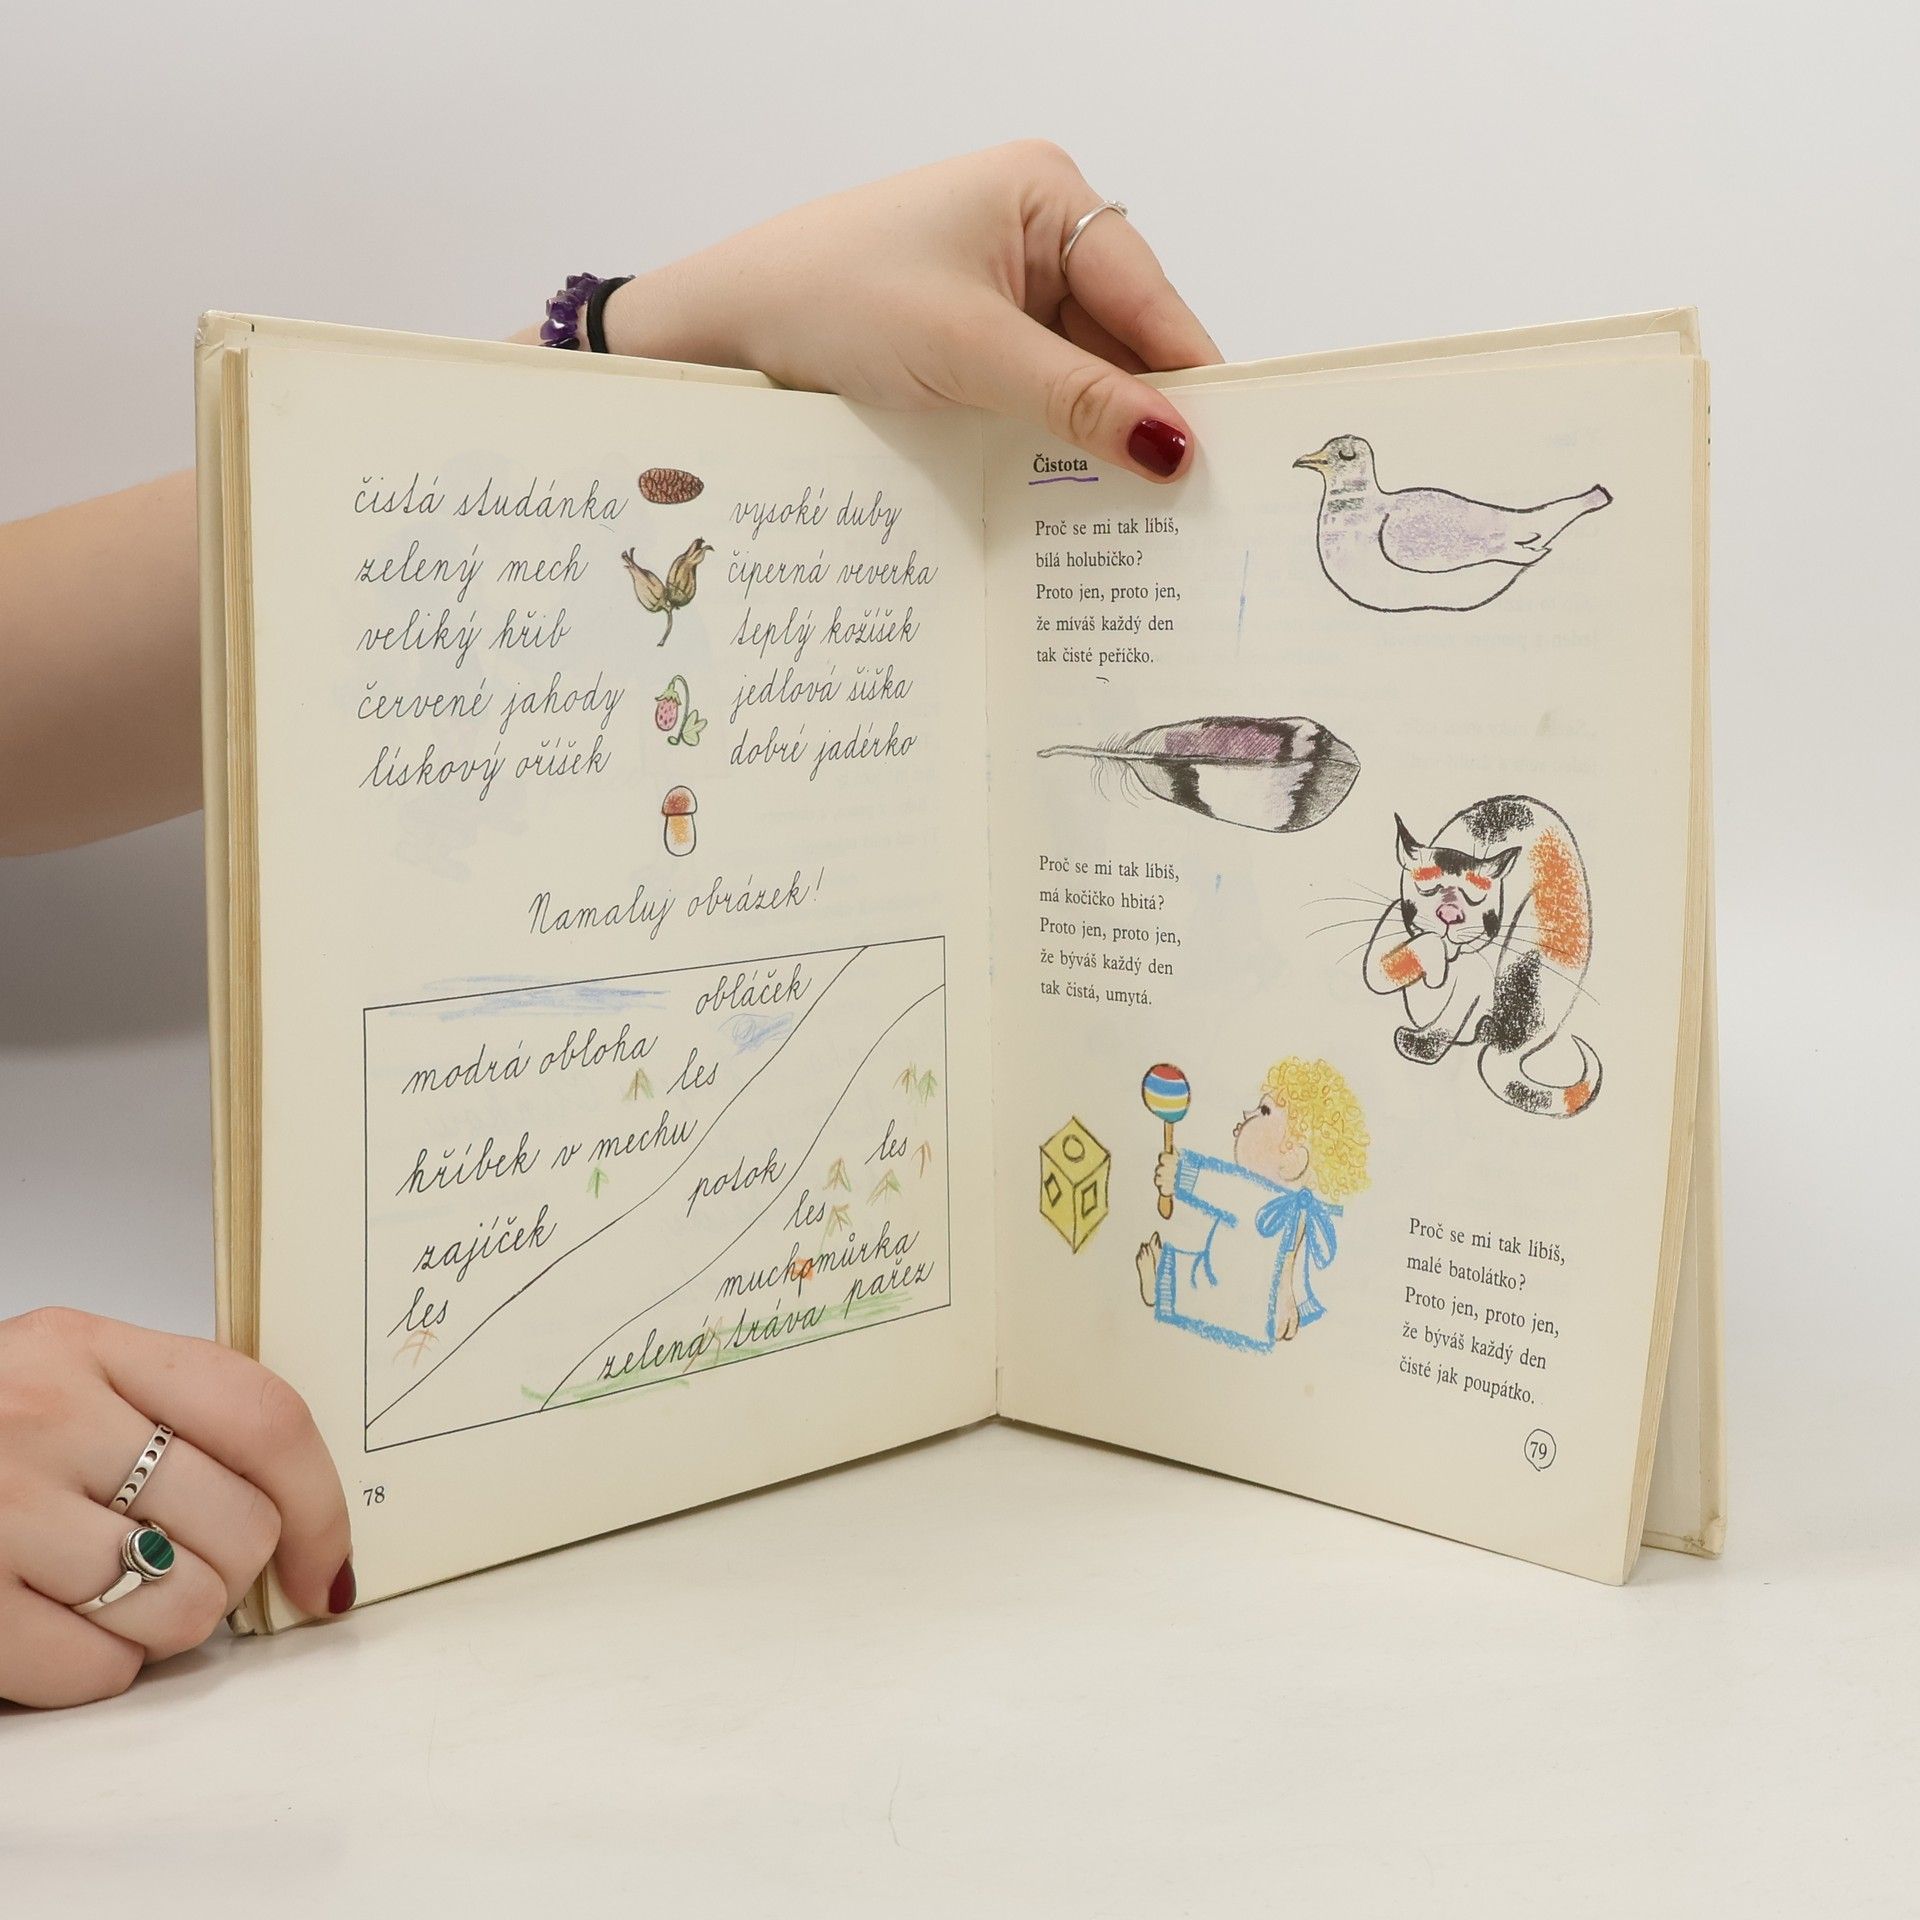 čistá studánka
zelený mech
veliký hřib
červené jahody
lískový oříšek
vysoké duby
čiperná veverka
teplý kožíšek
jedlová šiška
dobré jadérko
Namaluj obrázek!
obláček
modrá obloha
les
hříbek v mechu
potok
les
zajíček
les
les
muchomůrka
pařez
zelená tráva
78
Čistota
Proč se mi tak líbíš,
bílá holubičko?
Proto jen, proto jen,
že míváš každý den
tak čisté peříčko.
Proč se mi tak líbíš,
má kočičko hbitá?
Proto jen, proto jen,
že býváš každý den
tak čistá, umytá.
Proč se mi tak líbíš,
malé batolátko?
Proto jen, proto jen,
že býváš každý den
čisté jak poupátko.
79